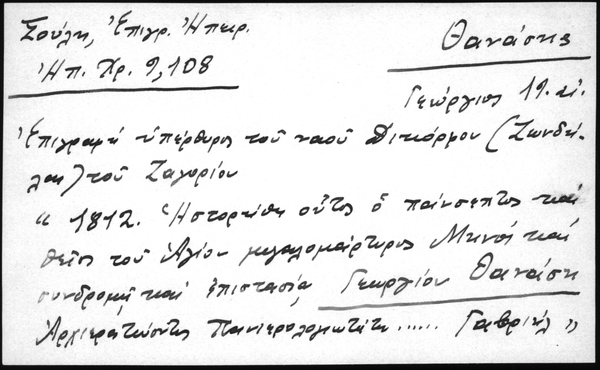 Σούλη, Ἐπιγρ. Ἠπειρ.
Θανάσης
Ἠπ. Χρ. 9, 108
Γεώργιος 19. αἰ.
Ἐπιγραφή ὑπέρθυρος τοῦ ναοῦ Δικόρφου (Ζωνδή-
λας) τοῦ Ζαγορίου
" 1812. Ἠστορείθη οὗτος ὁ πάνσεπτος καί
θεῖος τοῦ Ἁγίου μεγαλομάρτυρος Μηνᾶ καί
συνδρομῇ καί ἐπιστασίᾳ Γεωργίου Θανάση
Ἀρχιερατεύοντος Πανιερολογιωτάτου ...... Γαβριήλ "